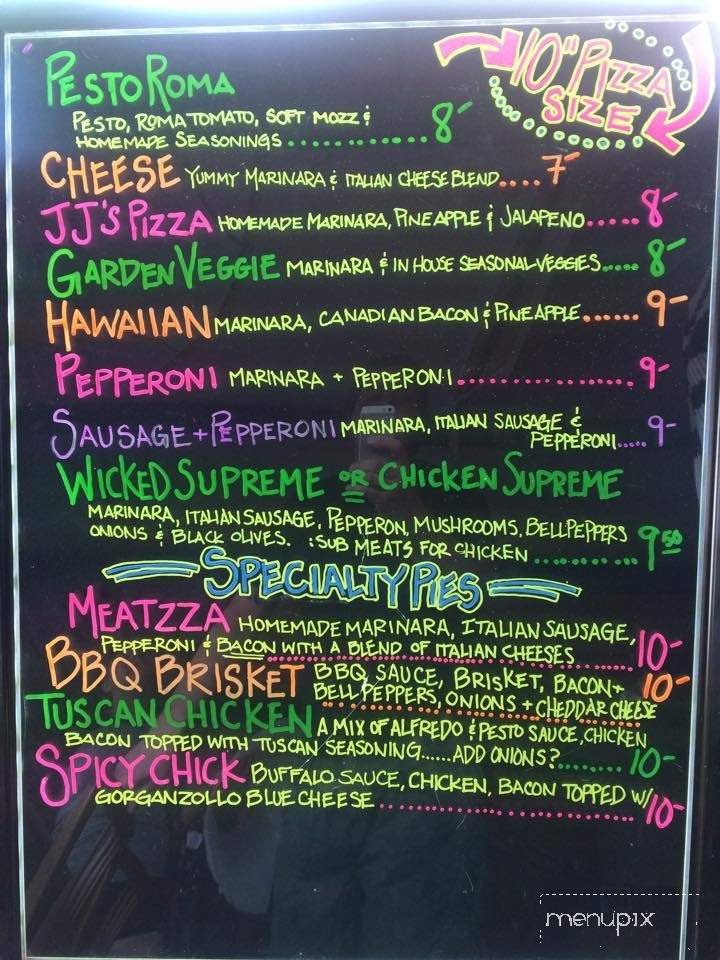 10" PIZZA
SIZE
PESTO ROMA
PESTO, ROMA TOMATO, SOFT MOZZ &
HOMEMADE SEASONINGS.............. 8-
CHEESE YUMMY MARINARA & ITALIAN CHEESE BLEND.... 7-
JJ'S PIZZA HOMEMADE MARINARA, PINEAPPLE & JALAPENO..... 8-
GARDEN VEGGIE MARINARA & IN HOUSE SEASONAL VEGGIES..... 8-
HAWAIIAN MARINARA, CANADIAN BACON & PINEAPPLE...... 9-
PEPPERONI MARINARA + PEPPERONI.................. 9-
SAUSAGE + PEPPERONI MARINARA, ITALIAN SAUSAGE &
PEPPERONI..... 9-
WICKED SUPREME OR CHICKEN SUPREME
MARINARA, ITALIAN SAUSAGE, PEPPERON, MUSHROOMS, BELL PEPPERS
ONIONS & BLACK OLIVES. :SUB MEATS FOR CHICKEN ............ 9.50
SPECIALTY PIES
MEATZZA HOMEMADE MARINARA, ITALIAN SAUSAGE,
PEPPERONI & BACON WITH A BLEND OF ITALIAN CHEESES 10-
BBQ BRISKET BBQ SAUCE, BRISKET, BACON + 10-
BELL PEPPERS, ONIONS + CHEDDAR CHEESE
TUSCAN CHICKEN A MIX OF ALFREDO & PESTO SAUCE, CHICKEN
BACON TOPPED WITH TUSCAN SEASONING......ADD ONIONS?......... 10-
SPICY CHICK BUFFALO SAUCE, CHICKEN, BACON TOPPED W/
GORGANZOLLO BLUE CHEESE .............................. 10-
menupix